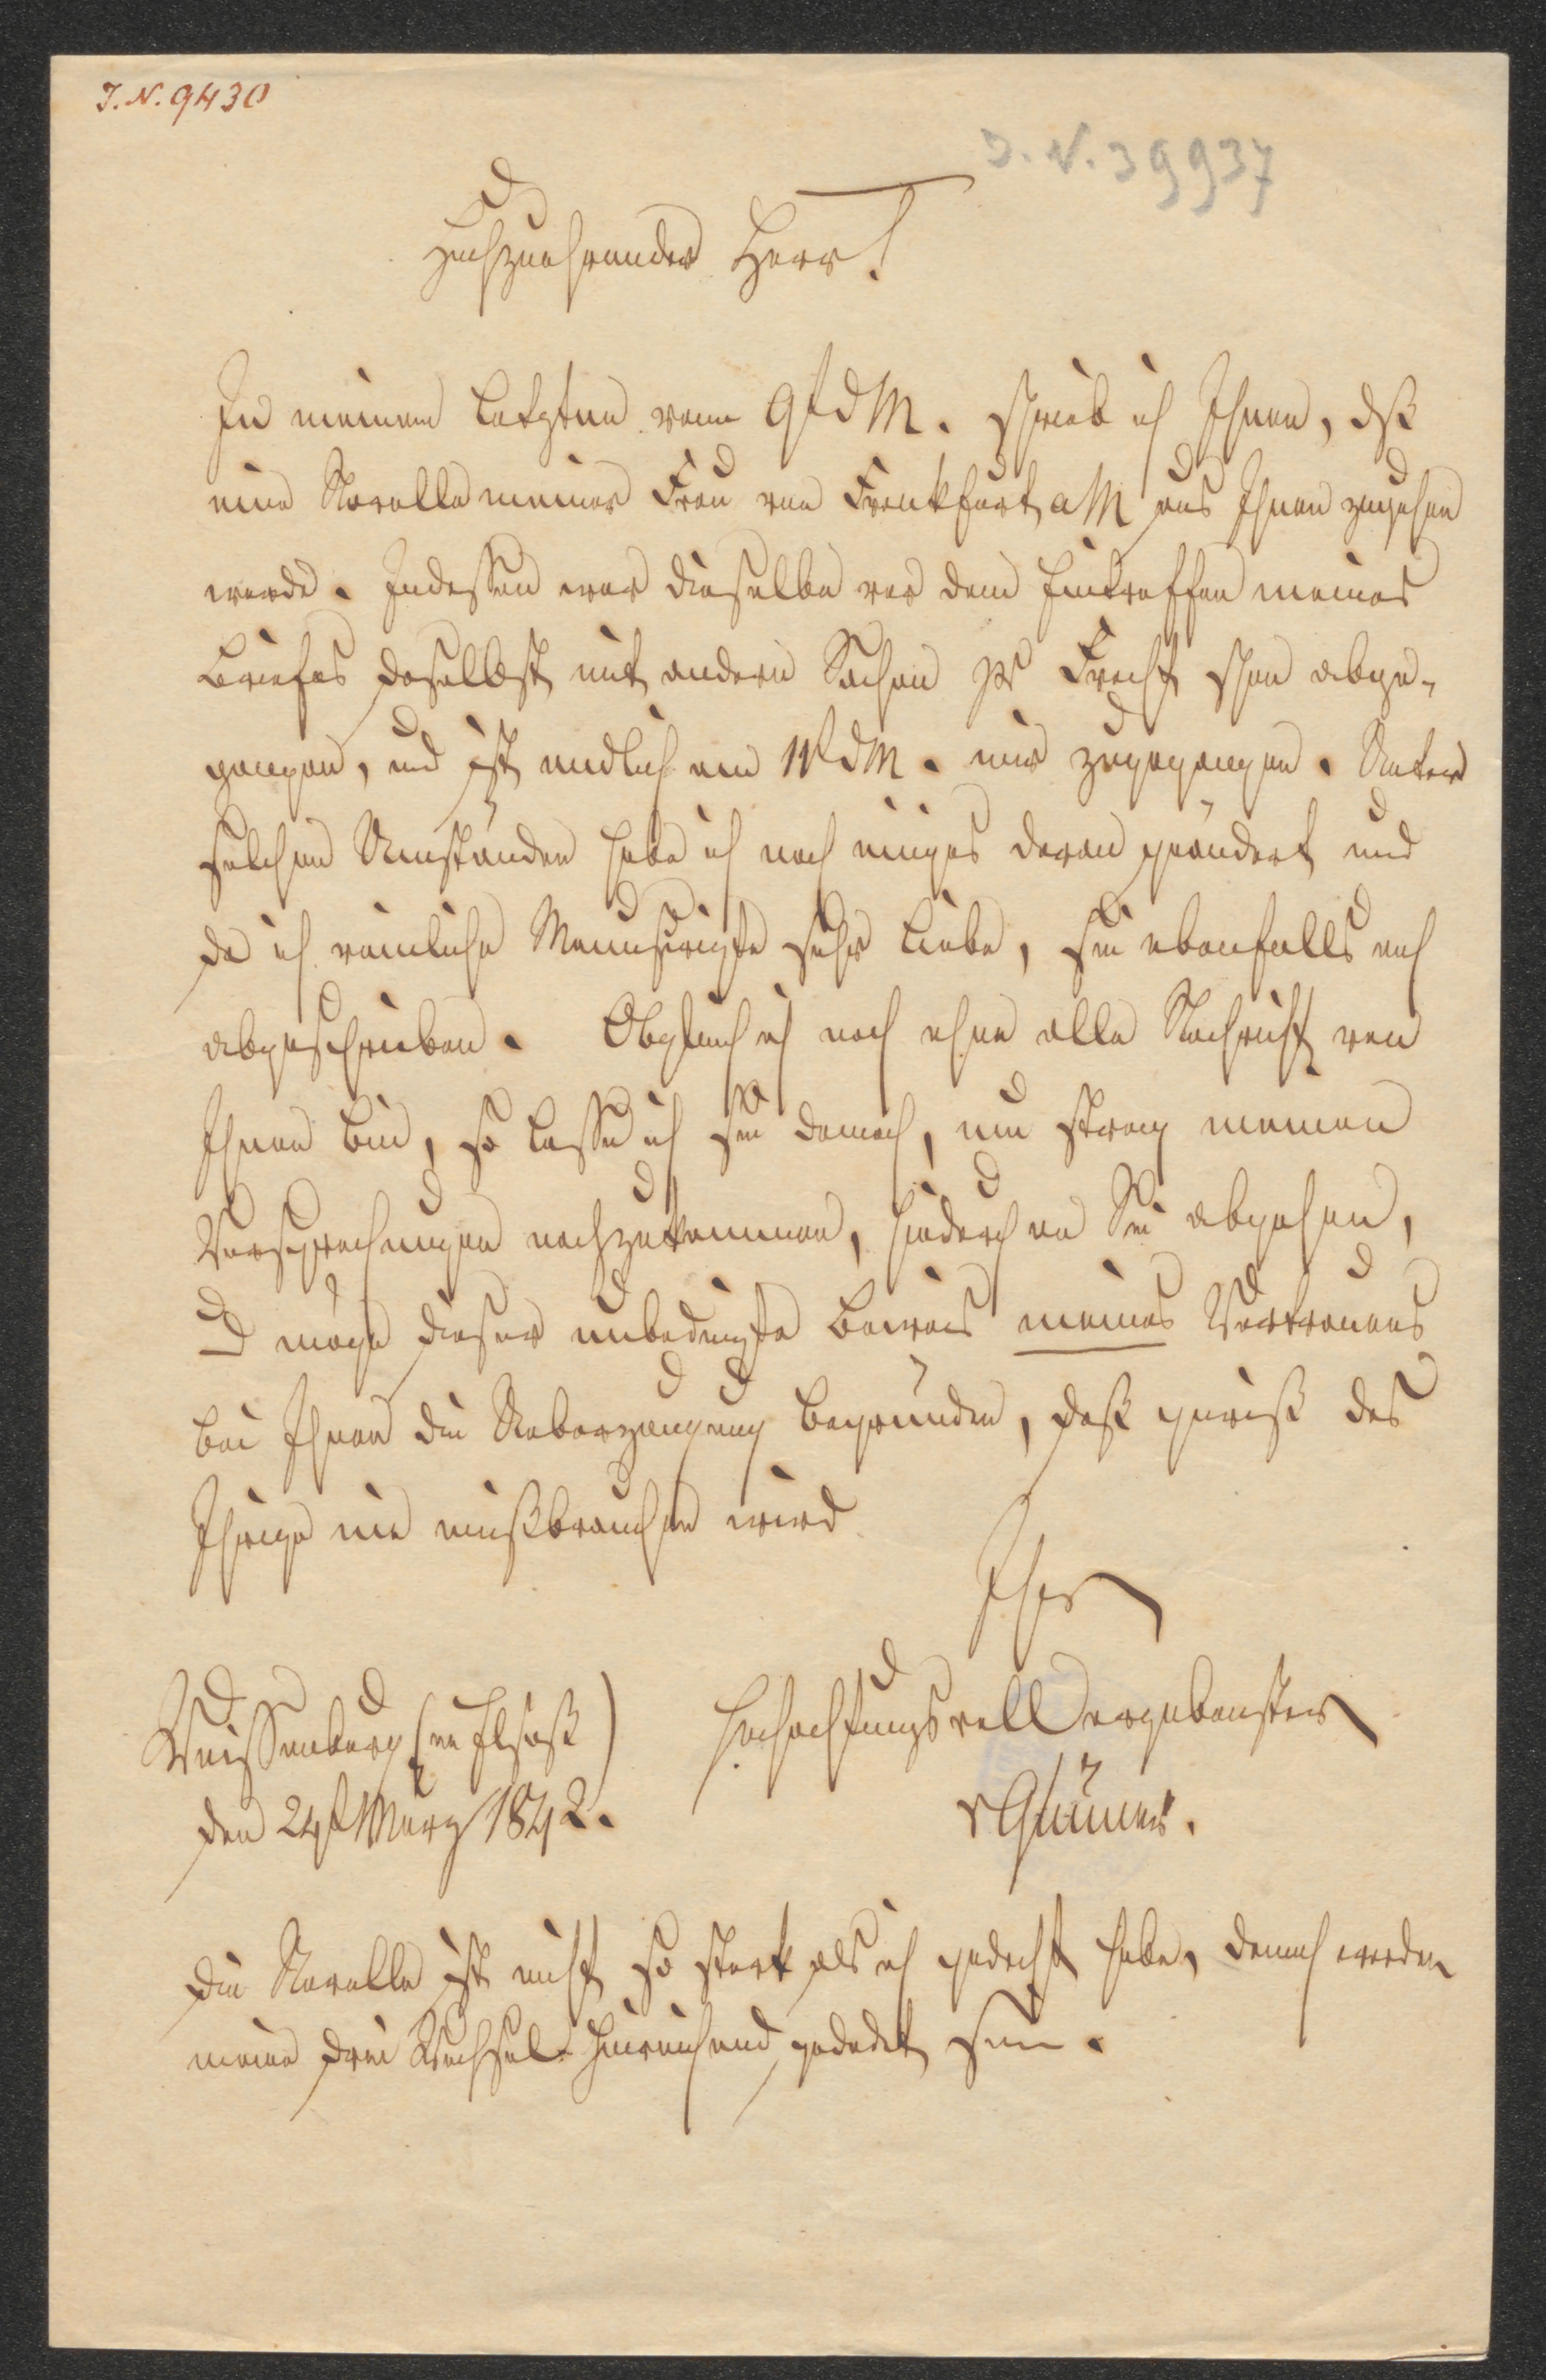 J. N. 9430
J. N. 39937
Hochzuehrender Herr!
In meinem Letzten vom 9t d M. schrieb ich Ihnen, dß
eine Novelle meiner Frau von Frankfurt a M aus Ihnen zugehen
werde. Indessen war dieselbe vor dem Eintreffen meines
Briefes daselbst mit andern Sachen pr Fracht schon abge-
gangen, und ist endlich am 11t d M. mir zugegangen. Unter
solchen Umständen habe ich noch einiges daran geändert und
da ich reinliche Manuscripte sehr liebe, sie ebenfalls auch
abgeschrieben. Obgleich ich noch ohne alle Nachricht von
Ihnen bin, so lasse ich sie dennoch, um streng meinen
Versprechungen nachzukommen, hiedurch an Sie abgehen,
u möge dieser unbedingte Beweis meines Vertrauens
bei Ihnen die Ueberzeugung begründen, daß gewiß das
Ihrige nie mißbrauchen wird
Ihr
hochachtungsvoll ergebenster
Weissenburg (im Elsaß)
den 24t März 1842.
v Grüner.
Die Novelle ist nicht so stark als ich gedacht habe, dennoch werden
meine drei Wechsel hinreichend gedeckt sein.